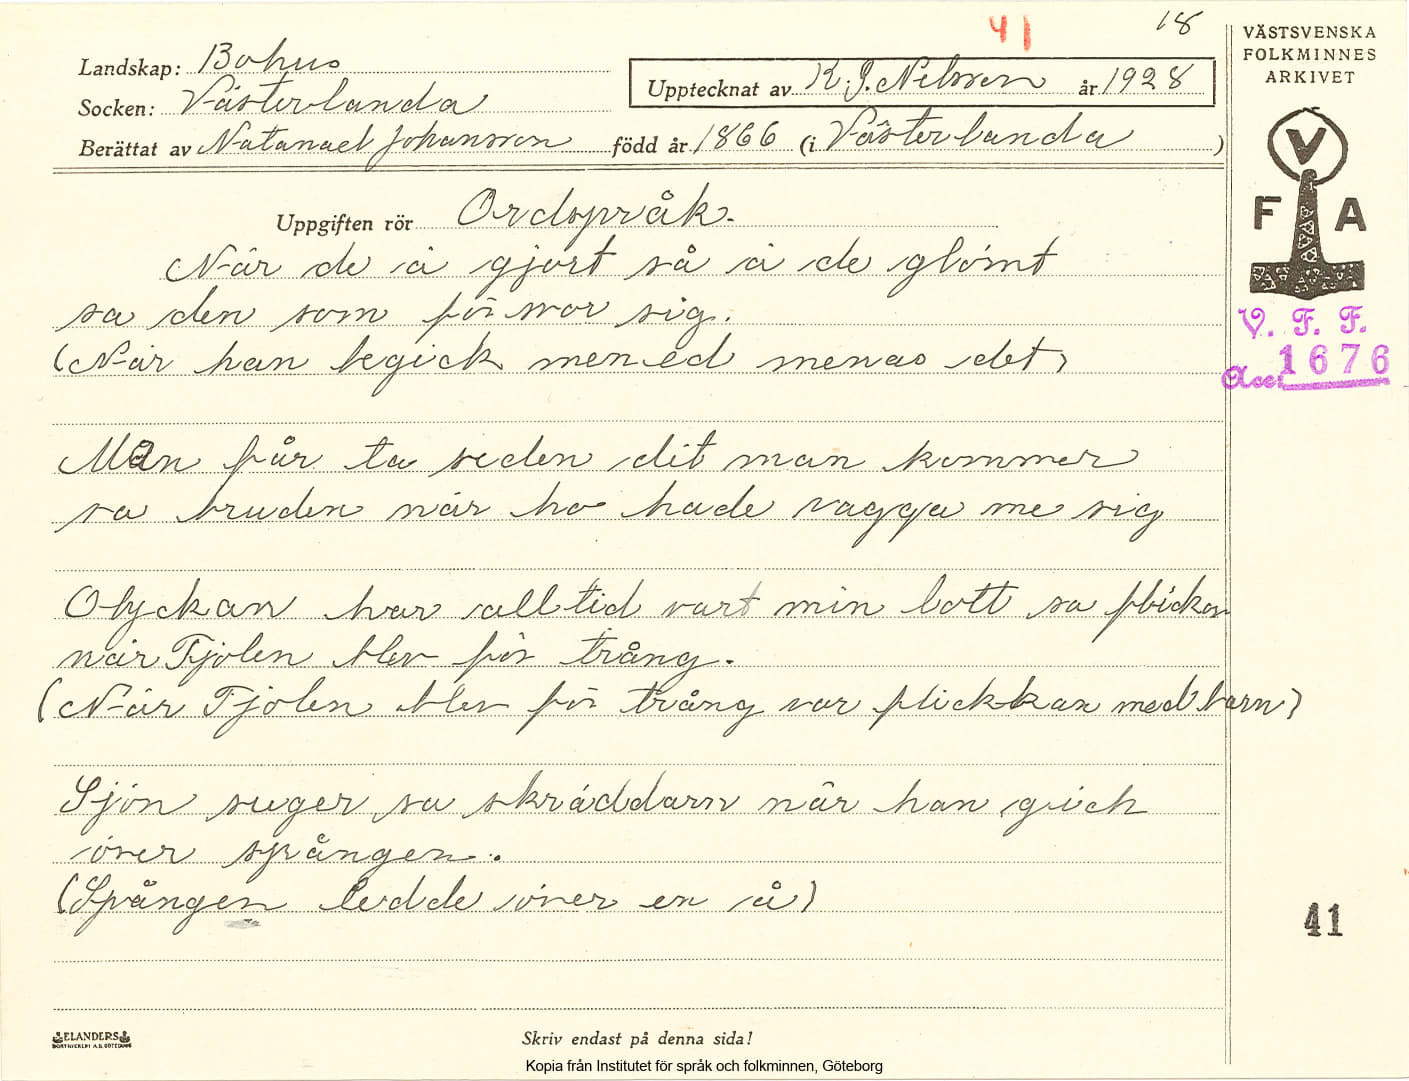 41
18
Landskap: Bohus
Socken: Västerlanda
Berättat av Natanael Johansson född år 1866 (i Västerlanda)
Upptecknat av K. J. Nilsson år 1928
VÄSTSVENSKA
FOLKMINNES
ARKIVET
V
F A
V. F. F.
Acc: 1676
Uppgiften rör Ordspråk.
När de ä gjort så ä de glömt
sa den som försvor sig.
(När han begick mened menas det)
Man får ta seden dit man kommer
sa bruden när ho hade vagga me sig
Olyckan har alltid vart min lott sa flickan
när Tjolen blev för trång.
(När Tjolen blev för trång var flickkan med barn)
Sjön suger sa skräddarn när han gick
över spången.
(Spången ledde över en å)
41
ELANDERS
BOKTRYCKERI A.B. GÖTEBORG
Skriv endast på denna sida!
Kopia från Institutet för språk och folkminnen, Göteborg